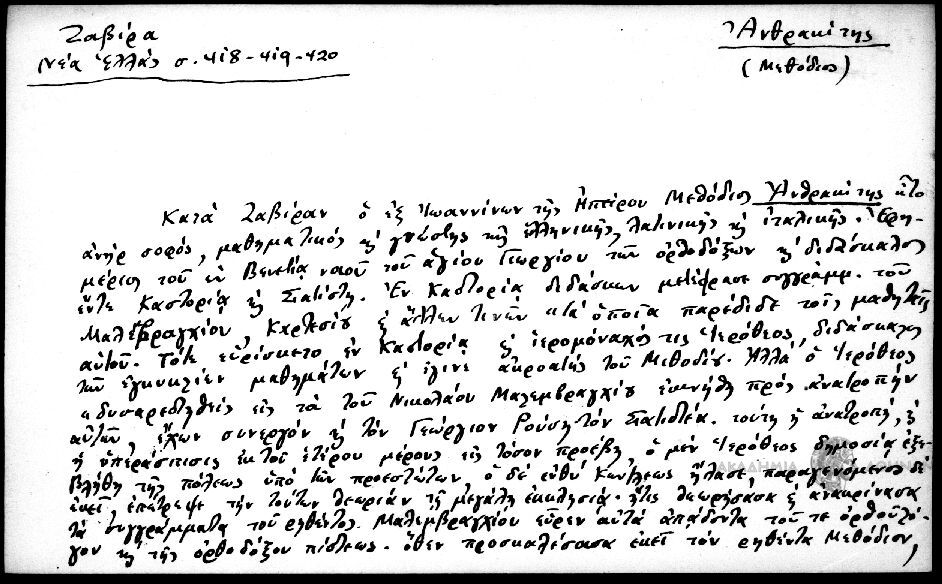 Ζαβίρα
Νέα Ἑλλάς σ. 418-419-420
Ἀνθρακίτης
(Μεθόδιος)
Κατά Ζαβίραν ὁ ἐξ Ἰωαννίνων τῆς Ἠπείρου Μεθόδιος Ἀνθρακίτης ἦτο
ἀνήρ σοφός, μαθηματικός καί γνώστης τῆς ἑλληνικῆς, λατινικῆς καί ἰταλικῆς. Ἐφη-
μέριος τοῦ ἐν Βενετίᾳ ναοῦ τοῦ ἁγίου Γεωργίου τῶν ὀρθοδόξων καί διδάσκαλος
ἔν τε Καστορίᾳ καί Σιατίστῃ. Ἐν Καστορίᾳ διδάσκων μετέφρασε συγγράμμ. τοῦ
Μαλεβραγχίου, Καρτεσίου καί ἄλλων τινῶν "τά ὁποῖα παρέδιδε τοῖς μαθηταῖς
αὐτοῦ. Τότε εὑρίσκετο ἐν Καστορίᾳ καί ἱερομόναχός τις Ἱερόθεος, διδάσκαλος
τῶν ἐγκυκλίων μαθημάτων καί ἔγινε ἀκροατής τοῦ Μεθοδίου. Ἀλλά ὁ Ἱερόθεος
"δυσαρεστηθείς εἰς τά τοῦ Νικολάου Μαλεμβραγχίου ἐκινήθη πρός ἀνατροπήν
αὐτῶν, ἔχων συνεργόν καί τόν Γεώργιον Ρούσην τόν Σιατιστέα. τούτη ἡ ἀνατροπή, καί
ἡ ὑπεράσπισις ἐκ τοῦ ἑτέρου μέρους εἰς τόσον προέβη, ὁ μέν Ἱερόθεος δημοσίᾳ ἐξε-
βλήθη τῆς πόλεως ὑπό τῶν προεστώτων, ὁ δέ εὐθύ Κων/λεως ἤλασε, παραγενόμενος δέ
ἐκεῖ, ἐπέτρεψε τήν τούτων θεωρίαν τῇ μεγάλῃ ἐκκλησίᾳ. ἥτις θεωρήσασα καί ἀνακρίνασα
τά συγγράμματα τοῦ ρηθέντος Μαλεμβραγχίου εὗρεν αὐτά ἀπᾴδοντα τοῦ τε ὀρθοῦ λό-
γου καί τῆς ὀρθοδόξου πίστεως. ὅθεν προσκαλέσασα ἐκεῖ τόν ρηθέντα Μεθόδιον,